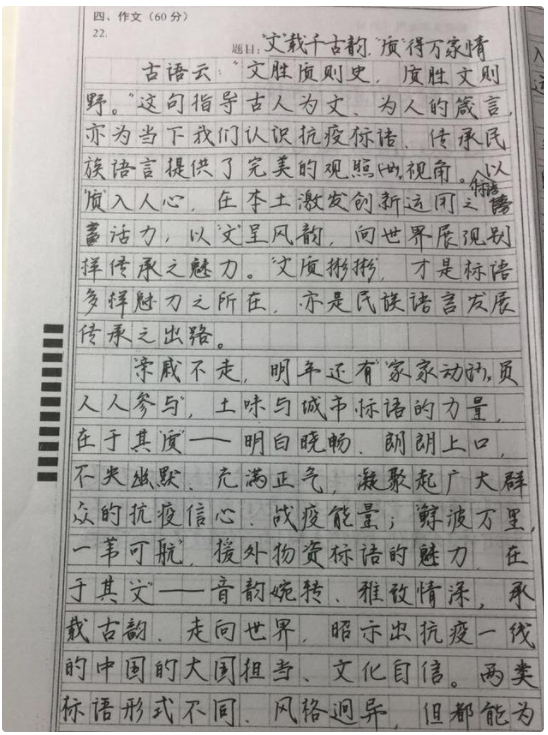 四、作文（60分）
22.
题目：“文”载千古韵，“质”得万家情
古语云：“文胜质则史，质胜文则
野。”这句指导古人为文、为人的箴言，
亦为当下我们认识抗疫标语、传承民
族语言提供了完美的观照视角。以
“质”入人心，在本土激发创新运用之标语
活力，以“文”呈风韵，向世界展现别
样传承之魅力。“文质彬彬”，才是标语
多样魅力之所在，亦是民族语言发展
传承之出路。
“亲戚不走，明年还有”“家家动员，
人人参与”，土味与城市标语的力量，
在于其“质”——明白晓畅、朗朗上口，
不失幽默、充满正气，凝聚起广大群
众的抗疫信心、战疫能量；“鲸波万里，
一苇可航”，援外物资标语的魅力，在
于其“文”——音韵婉转、雅致情深，承
载古韵、走向世界，昭示出抗疫一线
的中国的大国担当、文化自信。两类
标语形式不同、风格迥异，但都能为